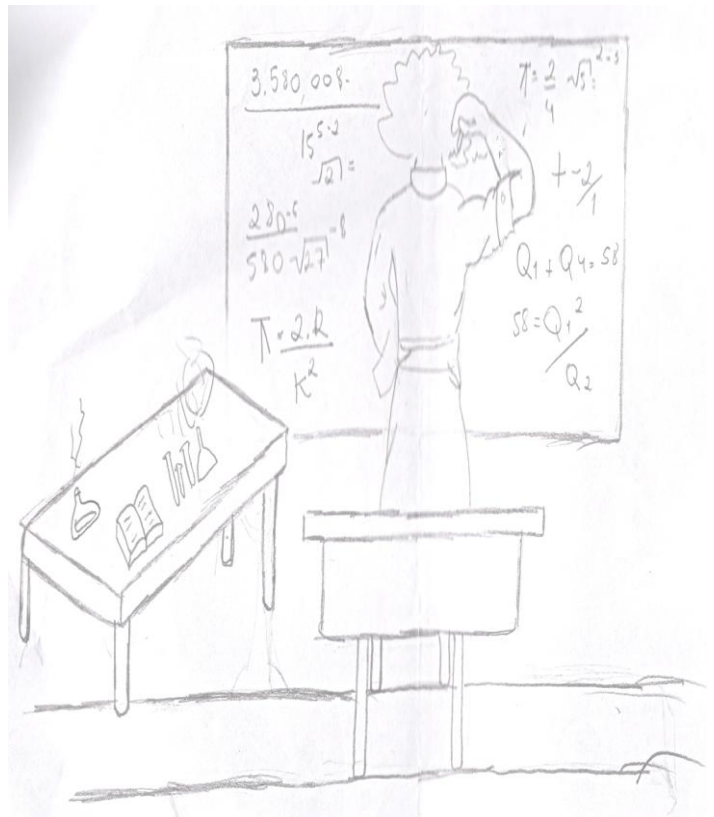 3,580,008.
15^5.2
√27 =
280-5
580-√27 -8
T = 2.R
K²
T = 2
4
√3:
+-2/1
Q₁ + Q₄ = 58
58 = Q₁²/Q₂